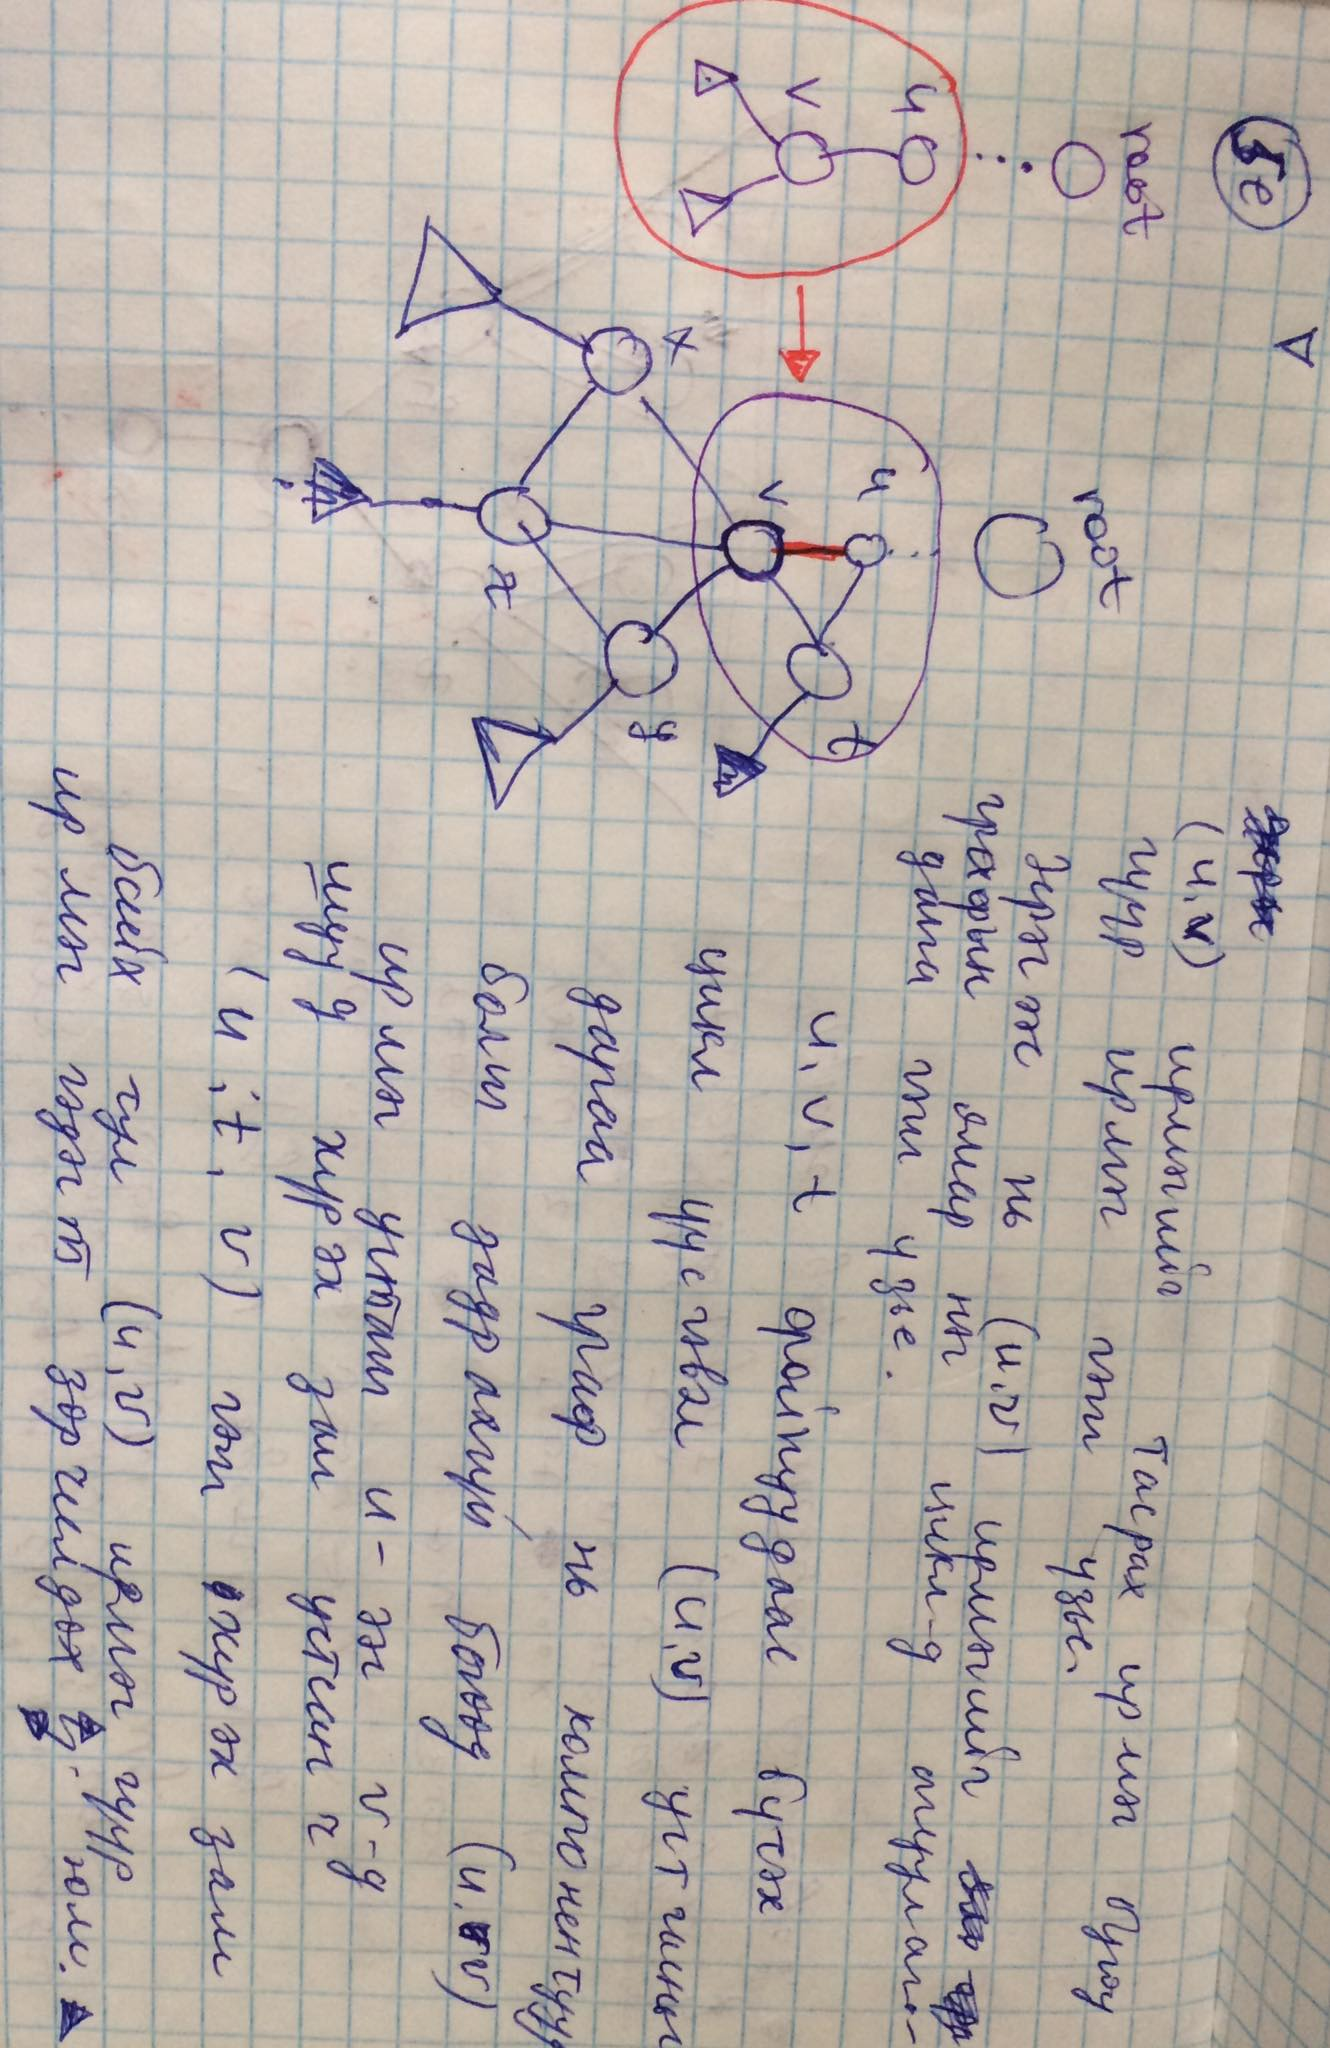 5e
root
u
v
root
u
v
t
x
y
z
(u,v) ирмэгийг тасрах ирмэг буюу
гүүр ирмэг гэж үзье.
Эргэж нь (u,v) ирмэгийг
графын ямар нэг цикл-д агуулаг-
даг гэж үзье.
u, v, t оройнуудаас бүтэх
цикл үүсгэвэл (u,v) устгасны
дараа граф нь компонентууд
болж задрахгүй бөгөөд (u,v)
ирмэг устаж u-ээс v-д
шууд хүрэх зам устсан ч
(u, t, v) гэж хүрэх зам
байх тул (u,v) ирмэг гүүр
ирмэг гэдэгт зөрчилдөх юм.